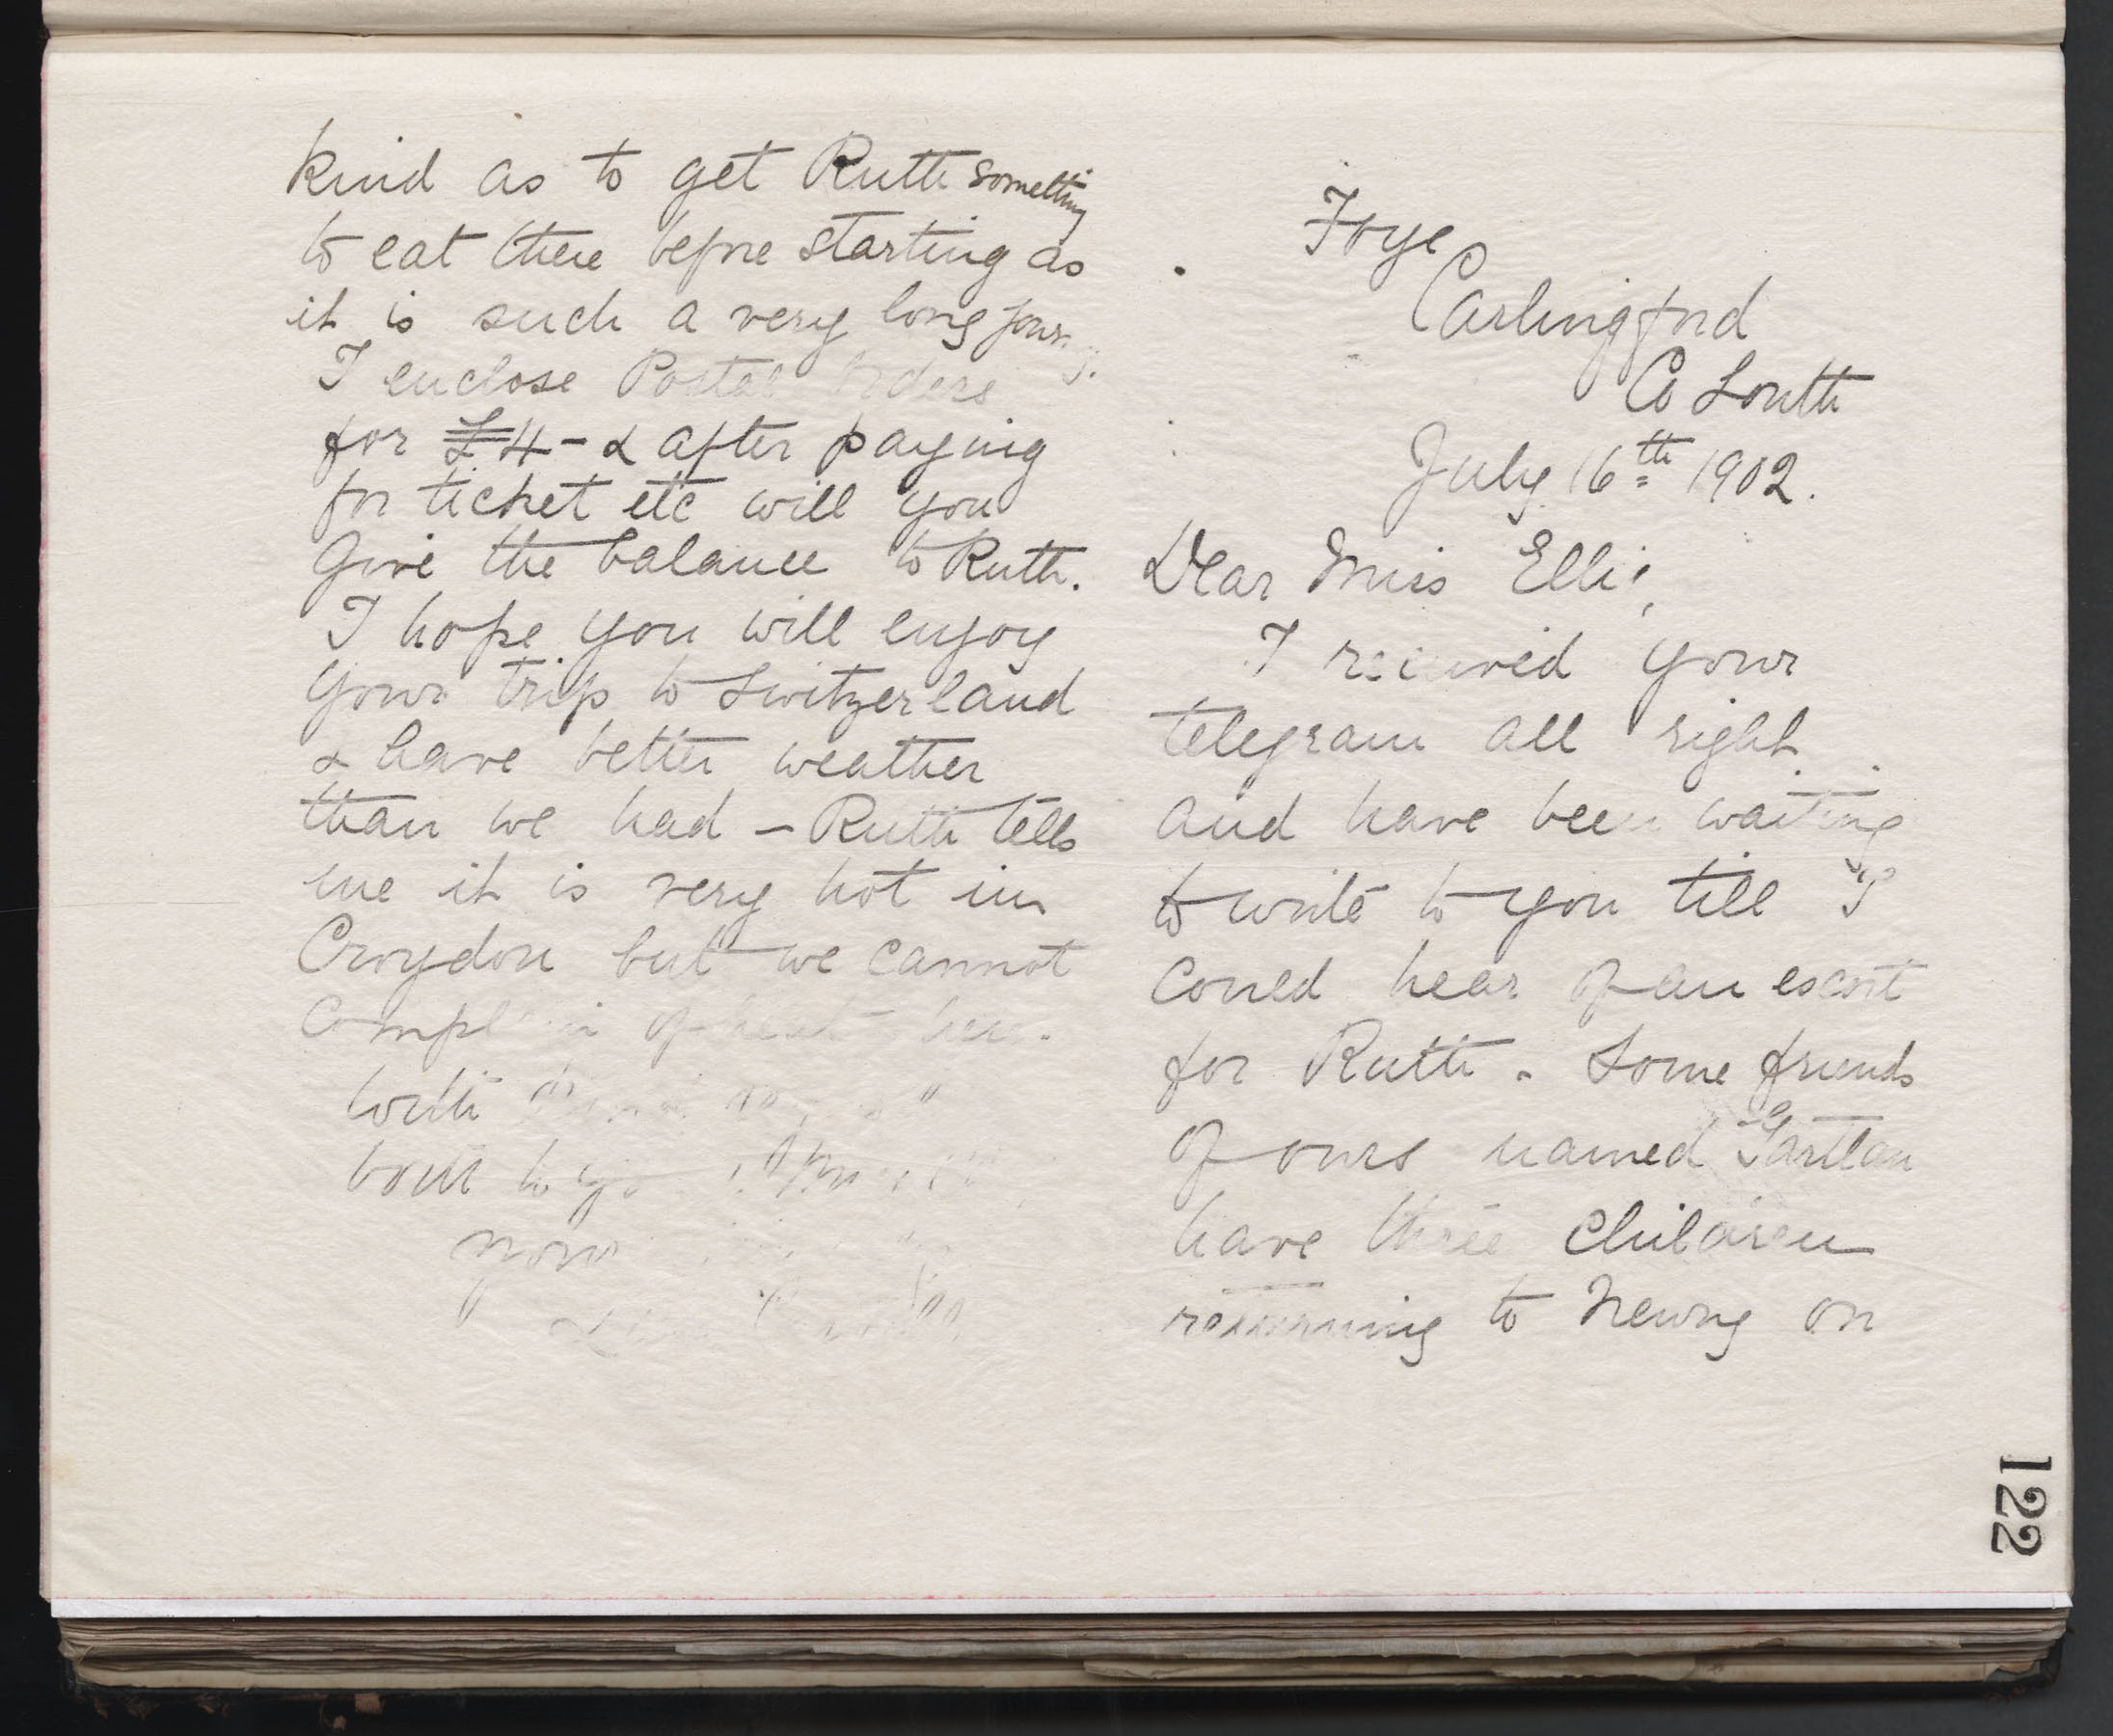 kind as to get Ruth something
to eat there before starting as
it is such a very long jour
I enclose Postal Orders
for £4 - & after paying
for ticket etc will you
give the balance to Ruth.
I hope you will enjoy
your trip to Switzerland
& have better weather
than we had - Ruth tells
me it is very hot in
Croydon but we cannot
complain of heat here.
With
both to you
Foye
Carlingford
Co Louth
July 16th 1902.
Dear Miss Ellis,
I received your
telegram all right
and have been waiting
to write to you till I
could hear of an escort
for Ruth. Some friends
of ours named Gartlan
have three children
returning to Newry on
122